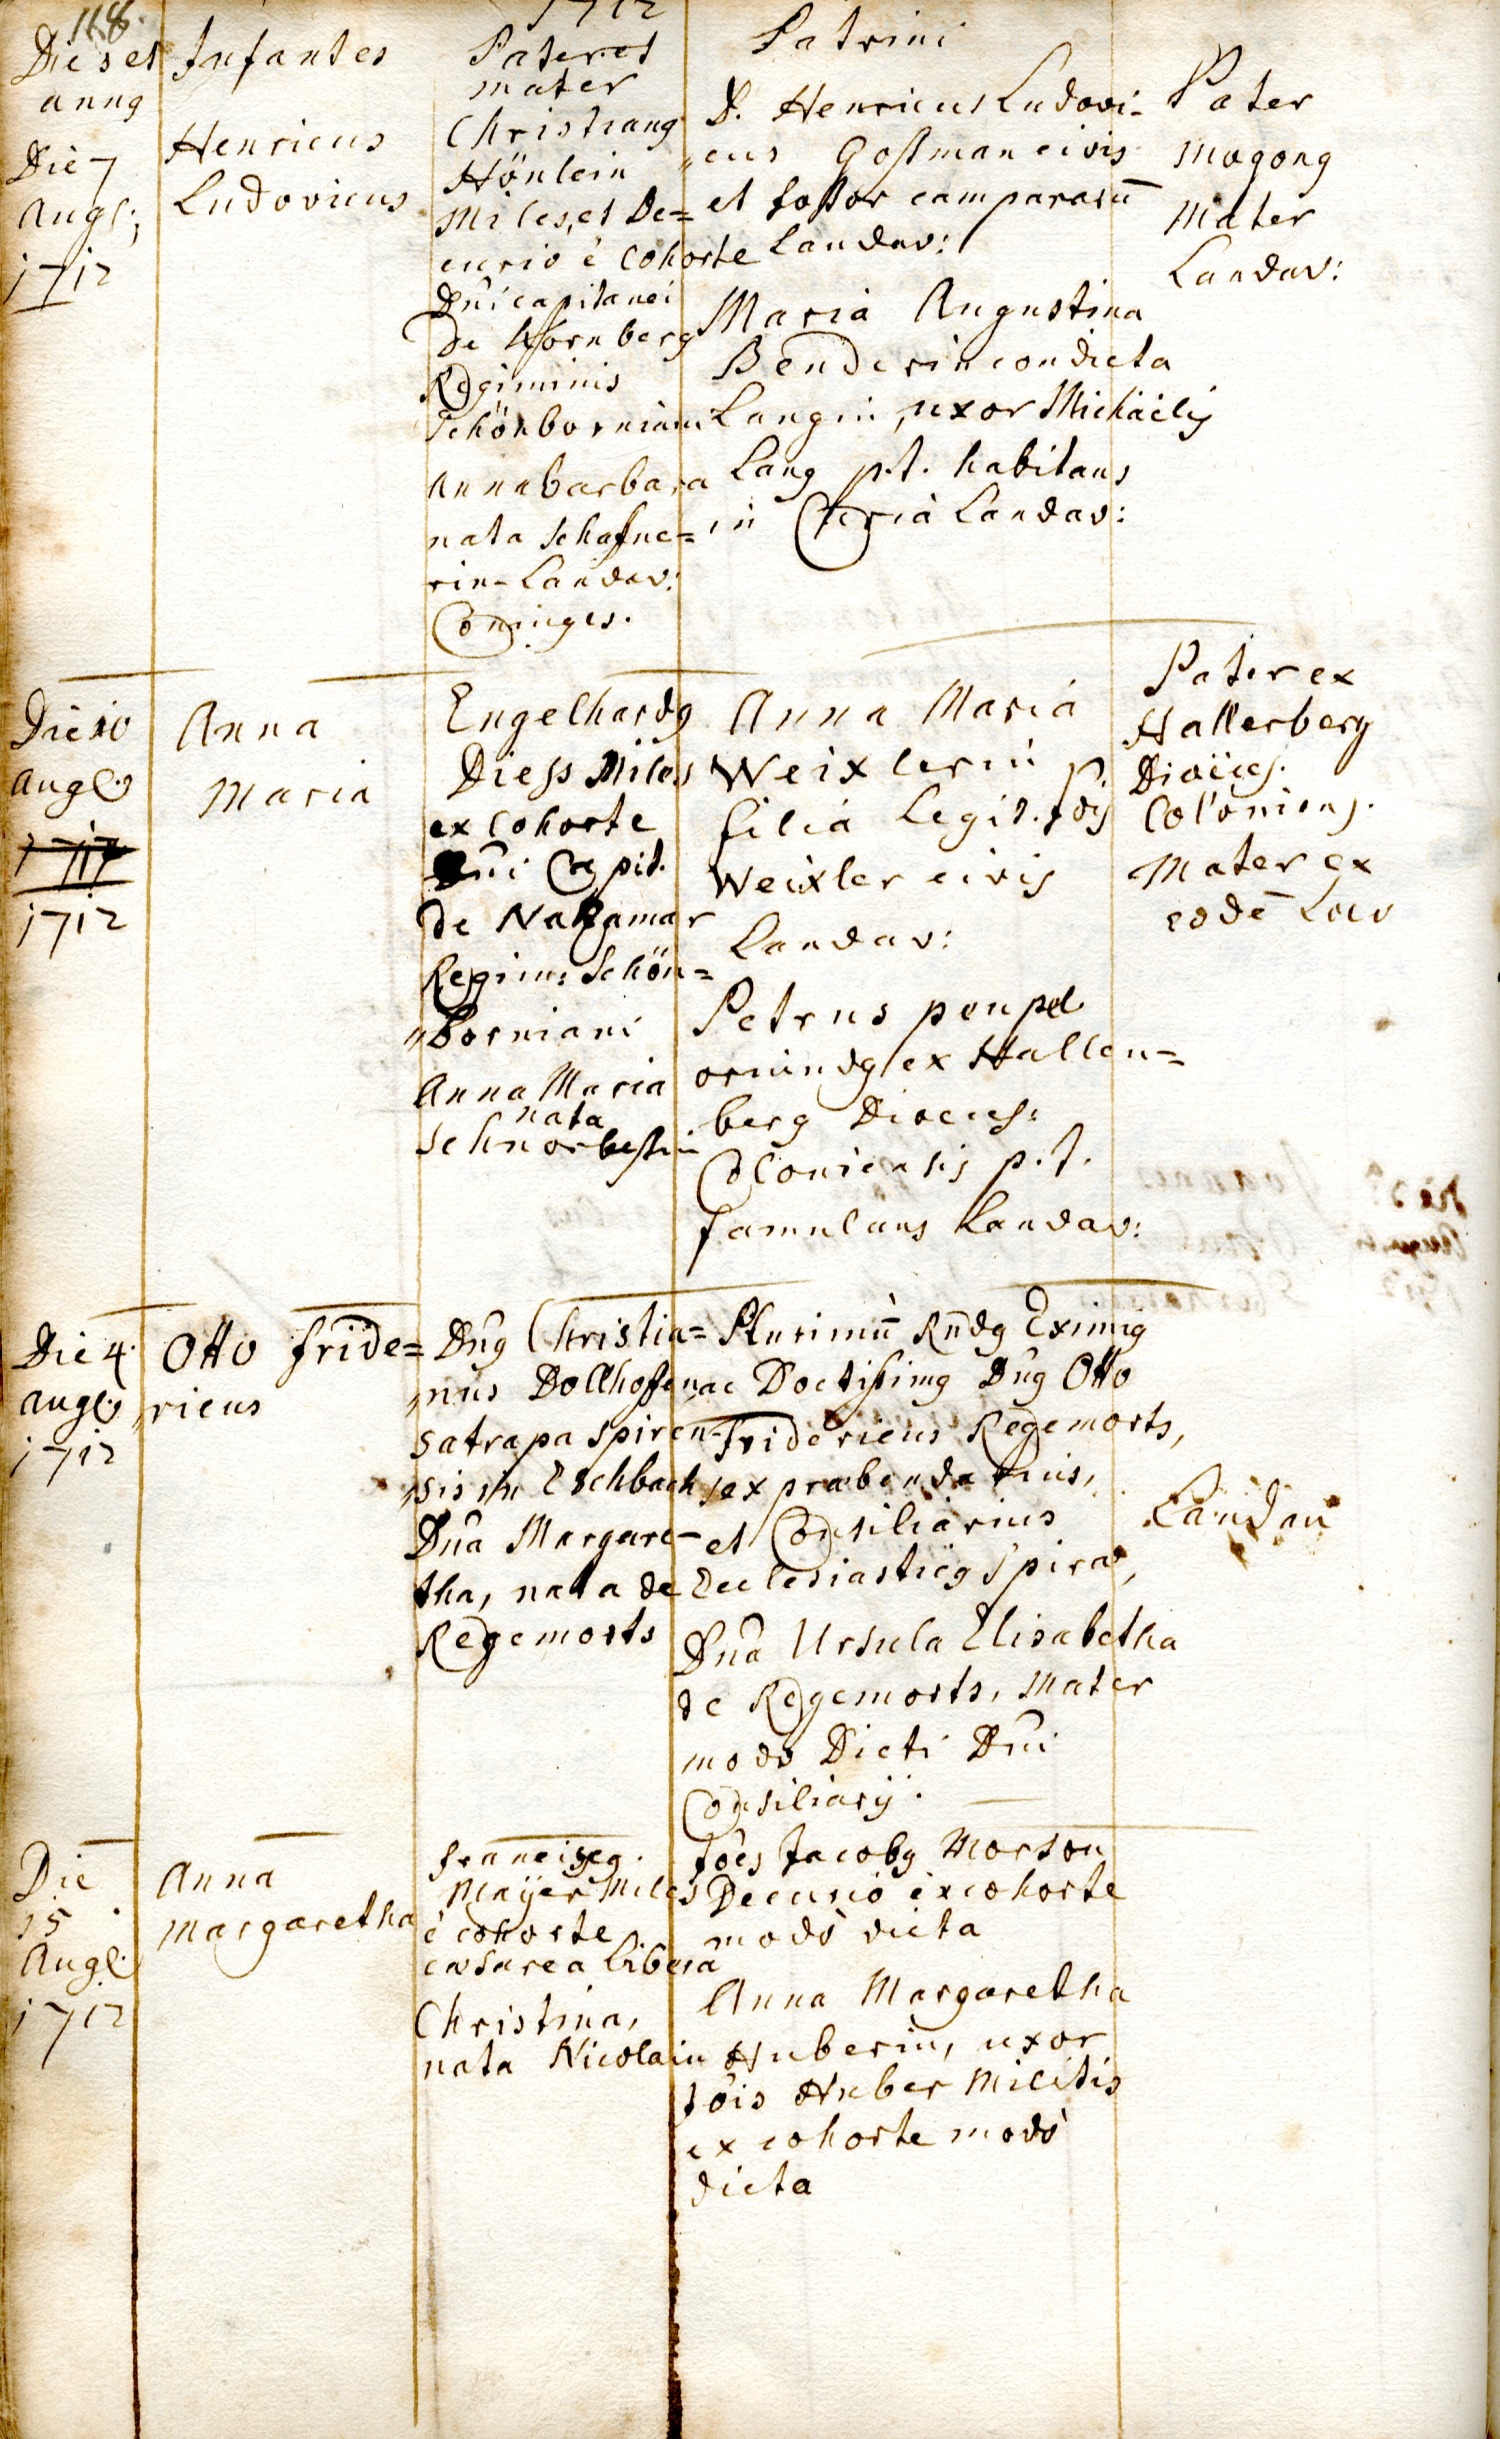 118.
1712
Dies et
anng
Infantes
Pater et
mater
Patrini
Die 7
Augl;
1712
Henricus
Ludovicus
Christiang
Hönlein
Miles, et De=
curio è Cohorte
Dni capitanei
de Kornberg
Regiminis
Schönborniani
Anna barbara
nata Schafne=
rin - Landav:
Coniuges.
D. Henricus Ludovi-
cus Gossman civis
et fossor camparum
Landav:
Maria Augustina
Benderin condicta
Langin, uxor Michaelis
Lang p.t. habitans
in Curia Landav:
Pater
Mogong
Mater
Landav:
Die 10
Augl;
1712
1712
Anna
Maria
Engelhardg
Diess Miles
ex Cohorte
Dni Capit.
de Nakamar
Regim: Schön=
borniani
Anna Maria
nata
Schnorbessin
Anna Maria
Weixlerin
filia Legit. Pdis
Weixler civis
Landav:
Petrus poupel
oriundg ex Hallen=
berg Dioeces:
Coloniensis p.t.
famulans Landav:
Pater ex
Hallerberg
Dioeces.
Coloniens.
Mater ex
eodē Loco
Die 4.
Augl;
1712
Otto Fride=
ricus
Dng Christia=
nus Dollhofen
Satrapa Spiren-
sis in Eschbach
Dna Margare-
tha, nata de
Regemorts
Plurimū Rndg Eximig
ac Doctissimg Dng Otto
Fridericus Regemorts,
sex præbendarius,
et Consiliarius
Ecclesiasticg Spiræ,
Dna Ursula Elisabetha
de Regemorts, Mater
modo Dicti Dni
Consiliarij.
Landau
Die
15.
Augl;
1712
Anna
Margaretha
Franciscg.
Mayer Miles
è cohorte
cæsarea Libera
Christina,
nata Nicolain
Jões Jacobg Morson
Decurio ex cohorte
modo dicta
Anna Margaretha
Huberin, uxor
Jõis Huber Militis
ex cohorte modò
dicta